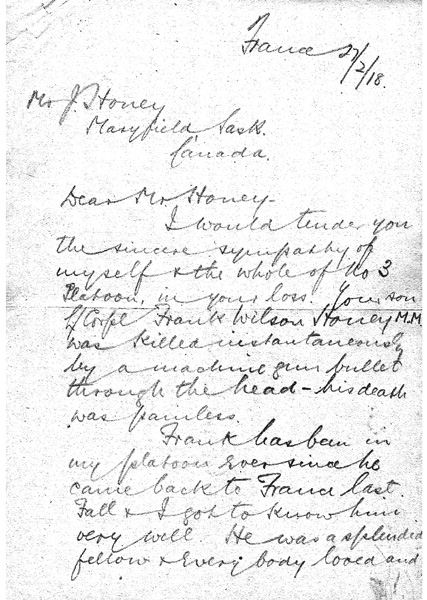 France 27/2/18.
Mr J. Honey
Maryfield Sask.
Canada.
Dear Mr Honey-
I would tender you
the sincere sympathy of
myself & the whole of No 3
Platoon, in your loss. Your son
L/Corpl Frank Wilson Honey M.M.
was killed instantaneously
by a machine gun bullet
through the head - his death
was painless.
Frank has been in
my platoon ever since he
came back to France last
Fall & I got to know him
very well. He was a splendid
fellow & every body loved and